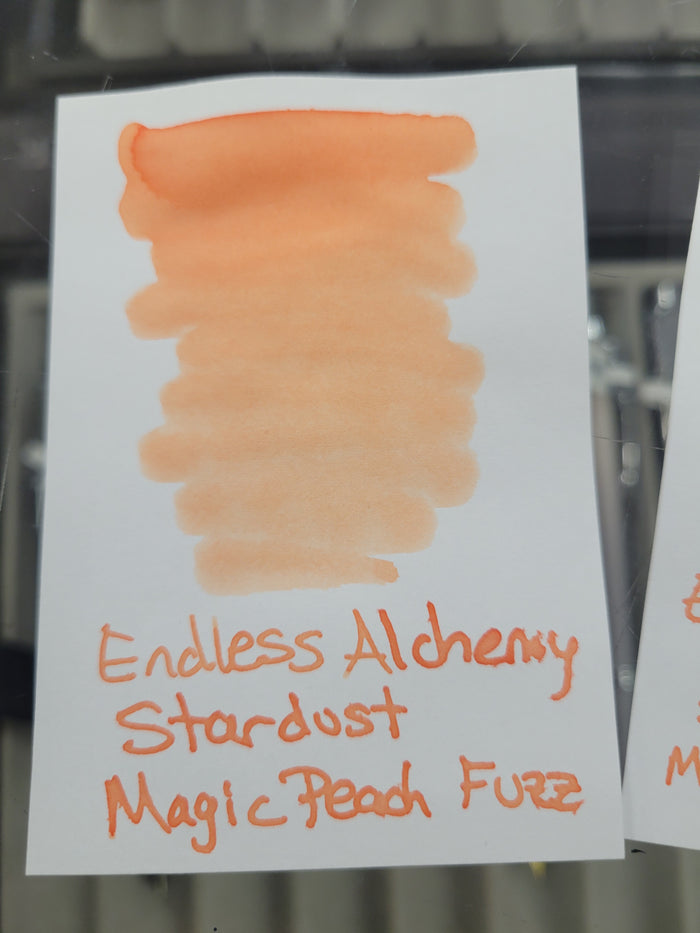 Endless Alchemy
Stardust
Magic Peach Fuzz